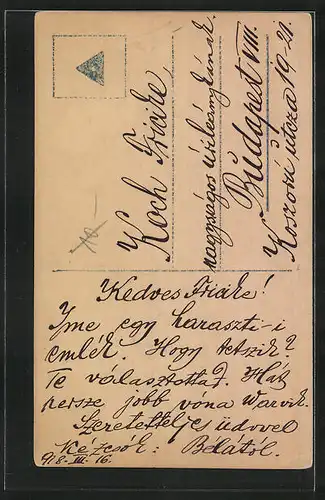 Koch Friczke
nagyságos úrileánykának
Budapest VIII.
Koszorú utcza 19-21.
Kedves Friczke!
Ime egy haraszti-i
emlék. Hogy tetszik?
Te választottad. Hát
persze jobb vóna Warvik.
Szeretettelje üdvvel
Kézcsók: Bélától.
918-III. 16.